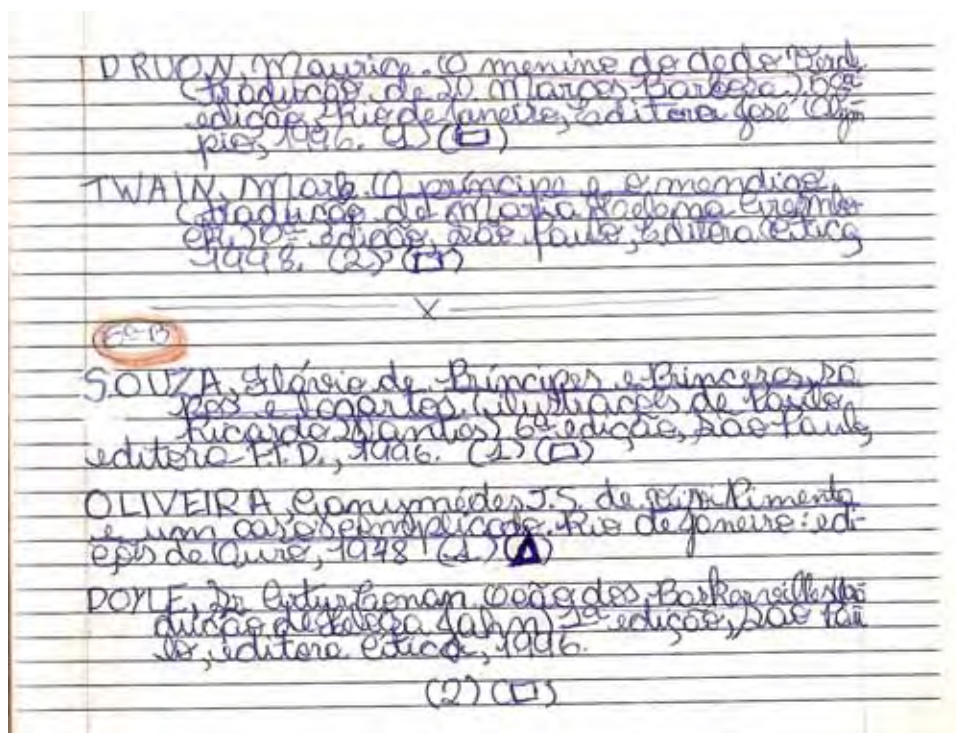 DRUON, Maurice. O menino do dedo Verde
(tradução de D. Marcos Barbosa)
edição, Rio de Janeiro, Editora José Olym
pio, 1996. (1) (▭)
TWAIN, Mark. O príncipe e o mendigo.
(tradução de Maria Helena
edição, São Paulo, Editora Ática,
1998. (2) (▭)
X
5ª B
SOUZA, Flávio de. Príncipes e Princesas, sa
pos e lagartos. (ilustrações de Paulo
Ricardo Dantos) 6ª edição, São Paulo,
editora F.T.D., 1996. (1) (▭)
OLIVEIRA, Ganymédes J.S. de. Pimenta
e um caso complicado. Rio de Janeiro: edi
de Ouro, 1978 (1) (Δ)
DOYLE, Sr Artur Conan. O cão dos Baskervilles (tra
dução de Heloisa Jahn) edição, São Pau
lo, editora Ática, 1996.
(2) (▭)